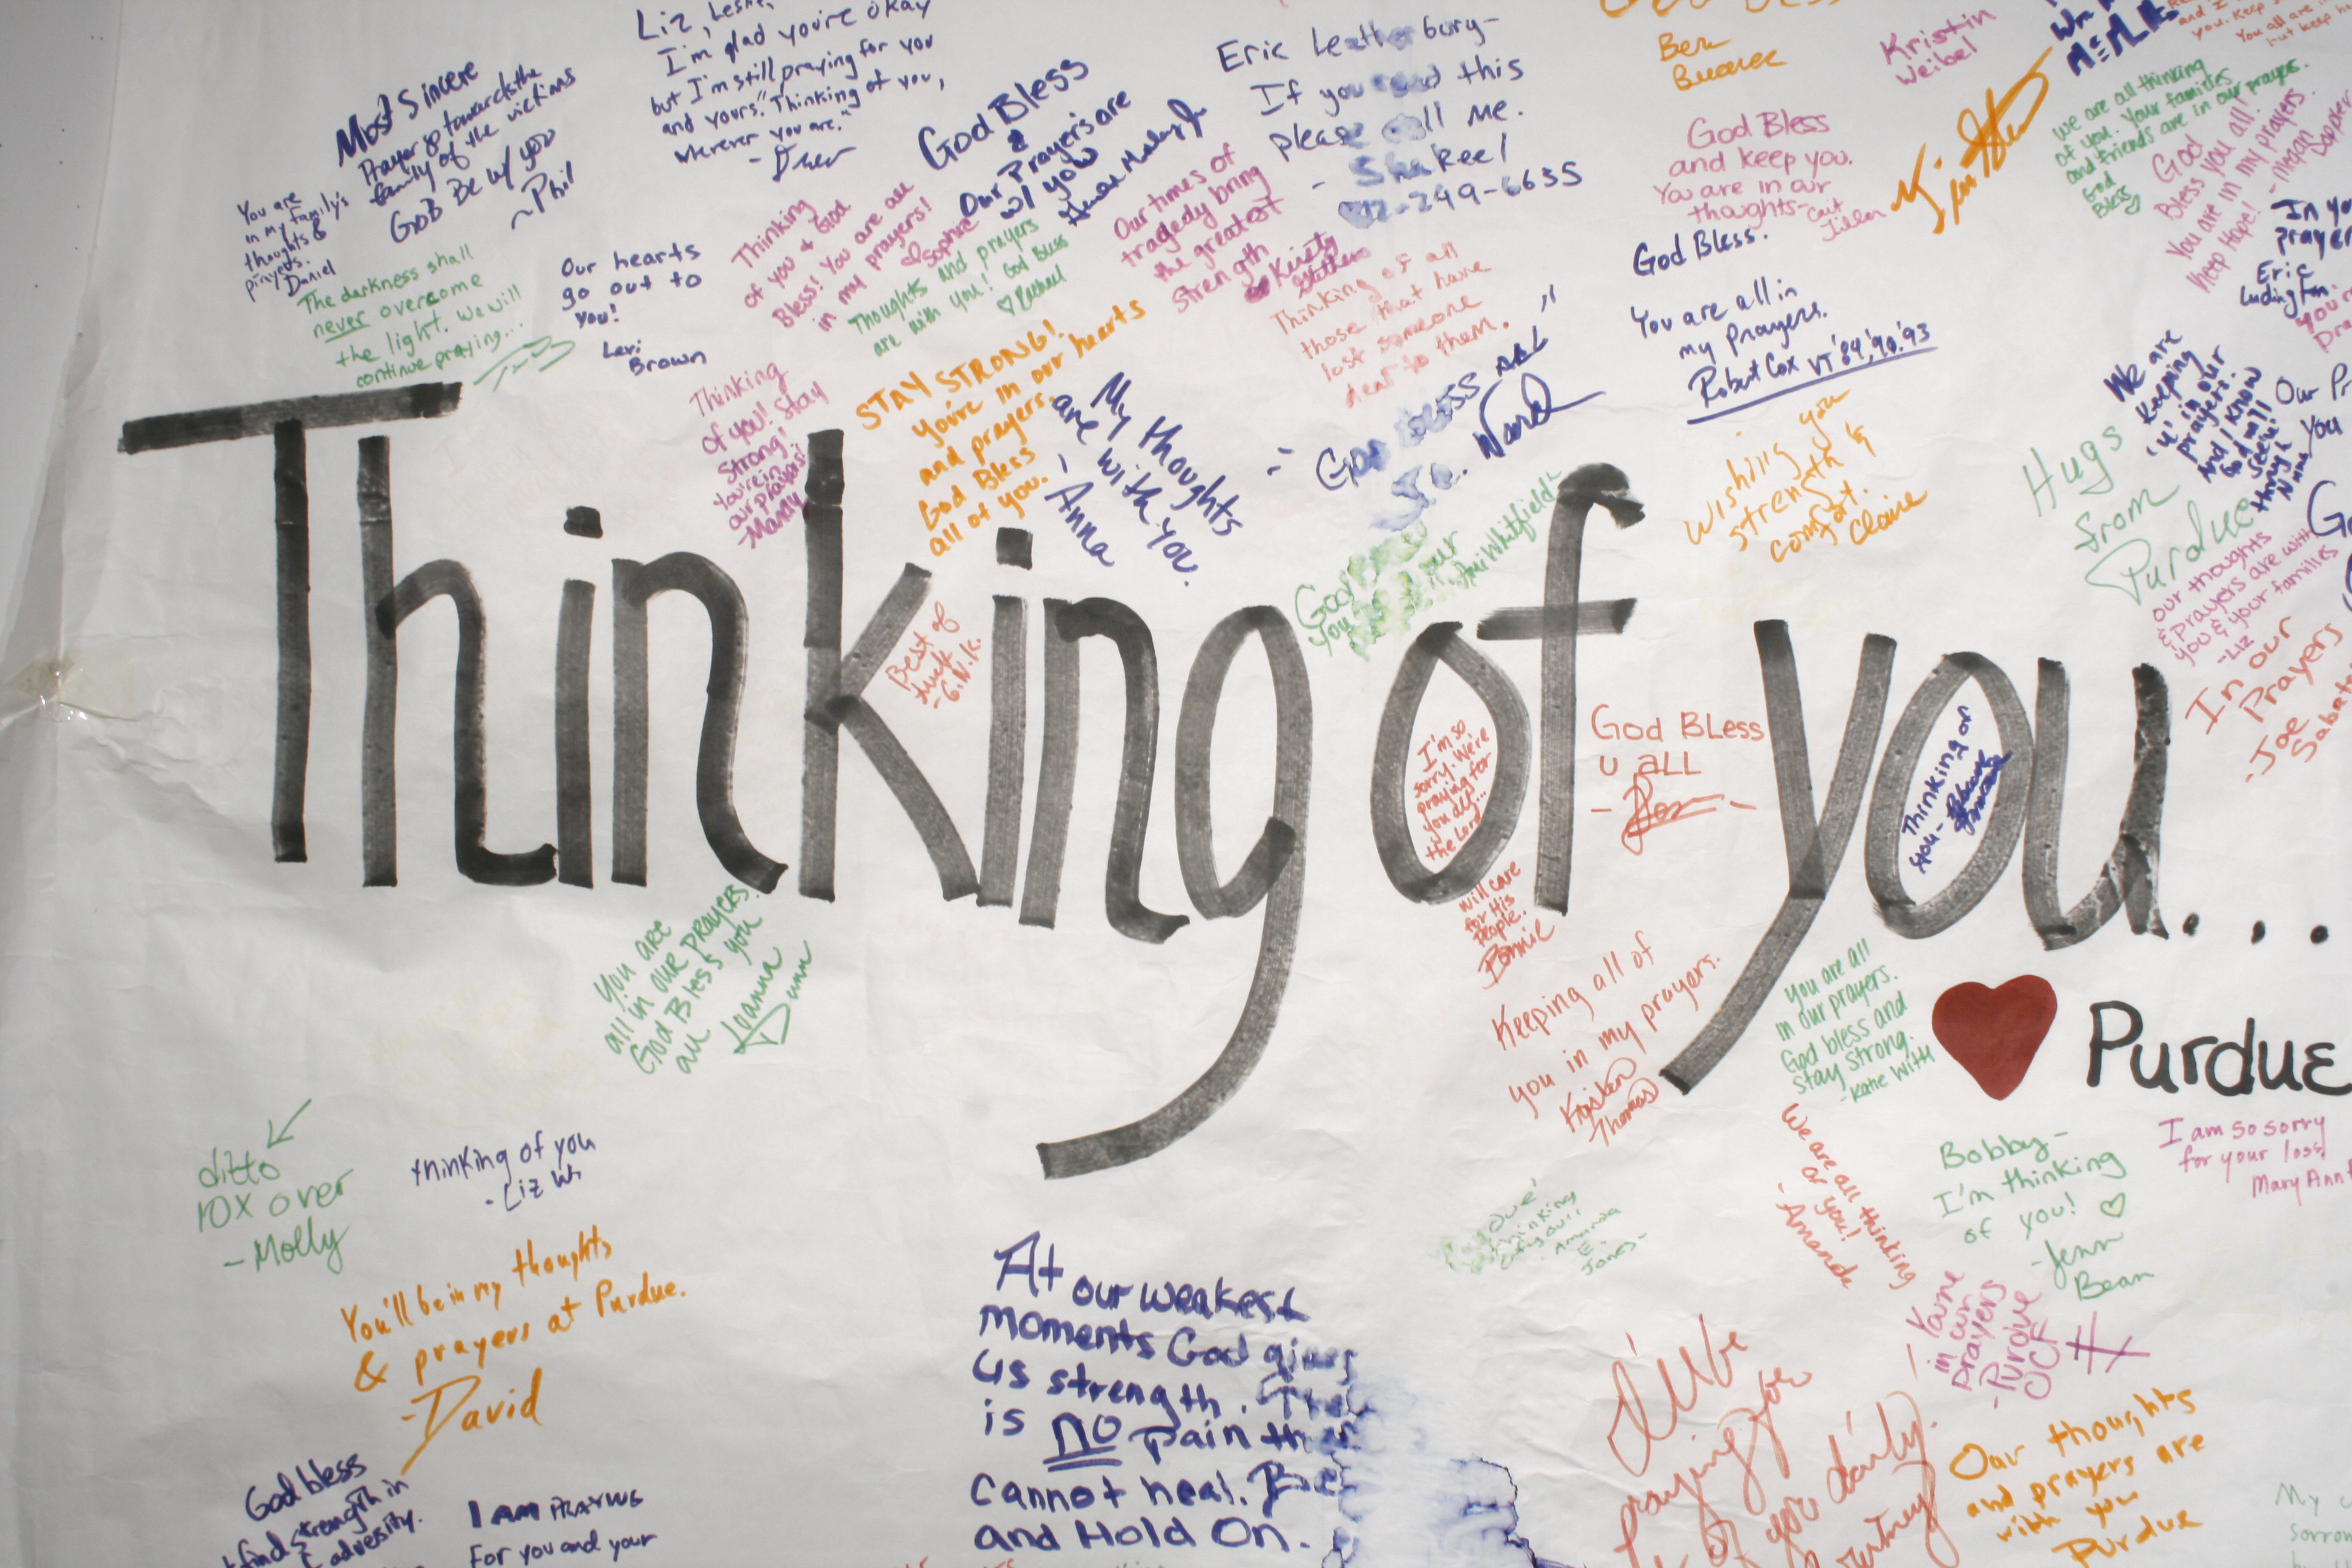 Liz,
I'm glad you're okay
but I'm still praying for you
and yours. "Thinking of you,
wherever you are."
- Drew
Most Sincere
Prayers towards the
family of the victims
GOD Be w/ you
~Phil
You are
in my family's
thoughts &
prayers.
Daniel
The darkness shall
never overcome
the light. We will
continue praying...
Our hearts
go out to
you!
Levi
Brown
God Bless
&
Our Prayers are
w/ you
Thinking
of you & God
Bless! You are all
in my prayers!
Sophie
Thoughts and prayers
are with you! God Bless
♡ Rachael
Eric Leatherbury-
If you read this
please call me.
- Shakeel
Our times of
tragedy bring
the greatest
strength
Kristy
Thinking of all
those that have
lost someone
dear to them.
Ben
Kristin
Weibel
God Bless
and keep you.
You are in our
thoughts-
Cait
Jillen
God Bless.
You are all in
my Prayers.
Robert Cox VT '84, '90, '93
we are all thinking
of you. Your families
and friends are in our prayers.
God
Bless
God
Bless you all!
You are in my prayers.
Keep Hope!
- Megan
In yo
prayer
Eric
Ludington
Thinking
of you! Stay
Strong!
You're in
our prayers!
-Mandy
STAY STRONG!
you're in our hearts
and prayers.
God Bless
all of you.
My thoughts
are with you.
- Anna
"God bless all"
Ward
God
you
Whitfield
Wishing you
strength &
comfort.
Claire
We are
keeping
'u' in our
prayers.
And I know
God will
see 'u'
through
Our Pr
you
Hugs
from
Purdue
our thoughts
& prayers are with
you & your families
-Liz
In our
Prayers
-Joe
Thinking of you...
Best of
luck
-G.N.K.
I'm so
sorry. We're
praying for
you all...
the Lord
will care
for His
People.
Bonnie
God Bless
u all
Thinking of
you-
♥ Purdue
you are
all in our prayers.
God Bless you
all
Joanna
Dunn
Keeping all of
you in my prayers.
Kristen
Thomas
You are all
in our prayers.
God bless and
stay strong.
-Katie With
We are all thinking
of you!
-Amanda
Bobby-
I'm thinking
of you! ♡
-Jenn
Bean
I am so sorry
for your loss
Mary Ann
ditto
10X over
-Molly
thinking of you
-Liz Wi
Thinking
Amanda
E.
Jones-
You're
in our
prayers
-Purdue
OCF
You'll be in my thoughts
& prayers at Purdue.
-David
At our weakest
moments God gives
us strength.
is NO pain
cannot heal.
and Hold On.
I'll be
praying for
of you daily.
Our thoughts
and prayers are
with you
Purdue
God bless
find strength in
adversity.
I am praying
for you and your
My
sorrow